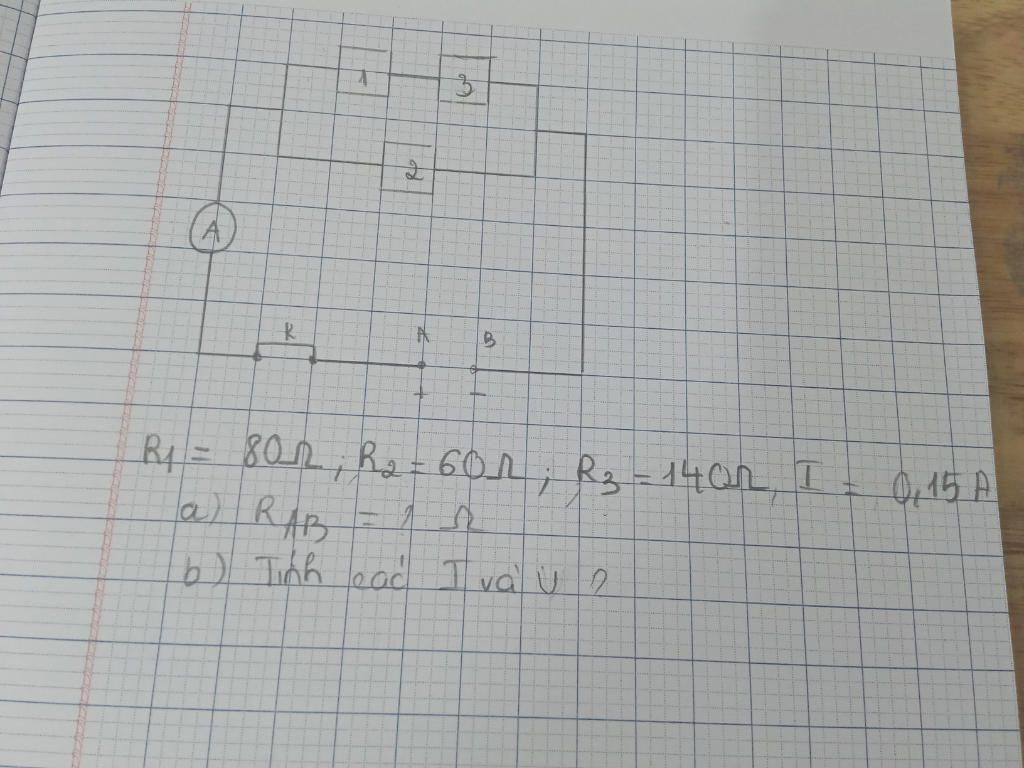 1 3
2
A
K A B
+ −
R1 = 80Ω ; R2 = 60Ω ; R3 = 140Ω, I = 0,15A
a) RAB = ? Ω
b) Tính các I và U ?